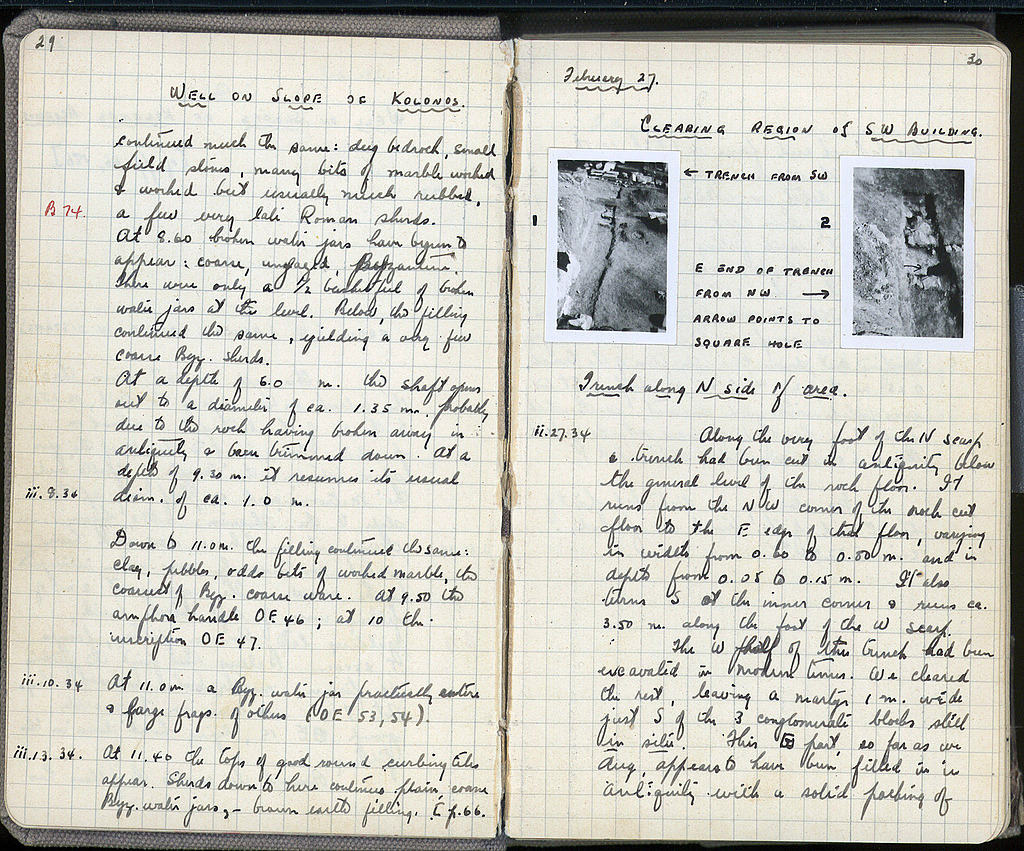 29
WELL ON SLOPE OF KOLONOS.
continued much the same: dug bedrock, small
field stones, many bits of marble worked
& worked but usually much rubbed,
B 74.
a few very late Roman sherds.
At 8.60 broken water jars have begun to
appear: coarse, unglazed, Byzantine.
There were only a 1/2 basketful of broken
water jars at the level. Below, the filling
continued the same, yielding a very few
coarse Byz. sherds.
At a depth of 6.0 m. the shaft opens
out to a diameter of ca. 1.35 m. probably
due to the rock having broken away in
antiquity & been trimmed down. At a
depth of 9.30 m. it resumes its usual
iii.8.34
diam. of ca. 1.0 m.
Down to 11.0 m. the filling continued the same:
clay, pebbles, odds bits of worked marble, the
coarsest of Byz. coarse ware. At 9.50 the
amphora handle OE 46; at 10 the
inscription OE 47.
iii.10.34
At 11.0 m a Byz. water jar practically entire
& large frags. of others (OE 53, 54).
iii.13.34.
At 11.40 the tops of good round curbing tiles
appear. Sherds down to here continue plain coarse
Byz. water jars, - brown earth filling. p. 66.
30
February 27.
CLEARING REGION of SW BUILDING.
← TRENCH FROM SW
1
2
E END OF TRENCH
FROM NW →
ARROW POINTS TO
SQUARE HOLE
Trench along N side of area.
ii.27.34
Along the very foot of the N scarp
a trench had been cut in antiquity below
the general level of the rock floor. It
runs from the NW corner of the rock cut
floor to the E edge of that floor, varying
in width from 0.60 to 0.80 m. and in
depth from 0.05 to 0.15 m. It also
turns S at the inner corner & runs ca.
3.50 m. along the foot of the W scarp.
The W half of this trench had been
excavated in modern times. We cleared
the rest, leaving a martyr 1 m. wide
just S of the 3 conglomerate blocks still
in situ. This E part, so far as we
dug, appears to have been filled in in
antiquity with a solid packing of